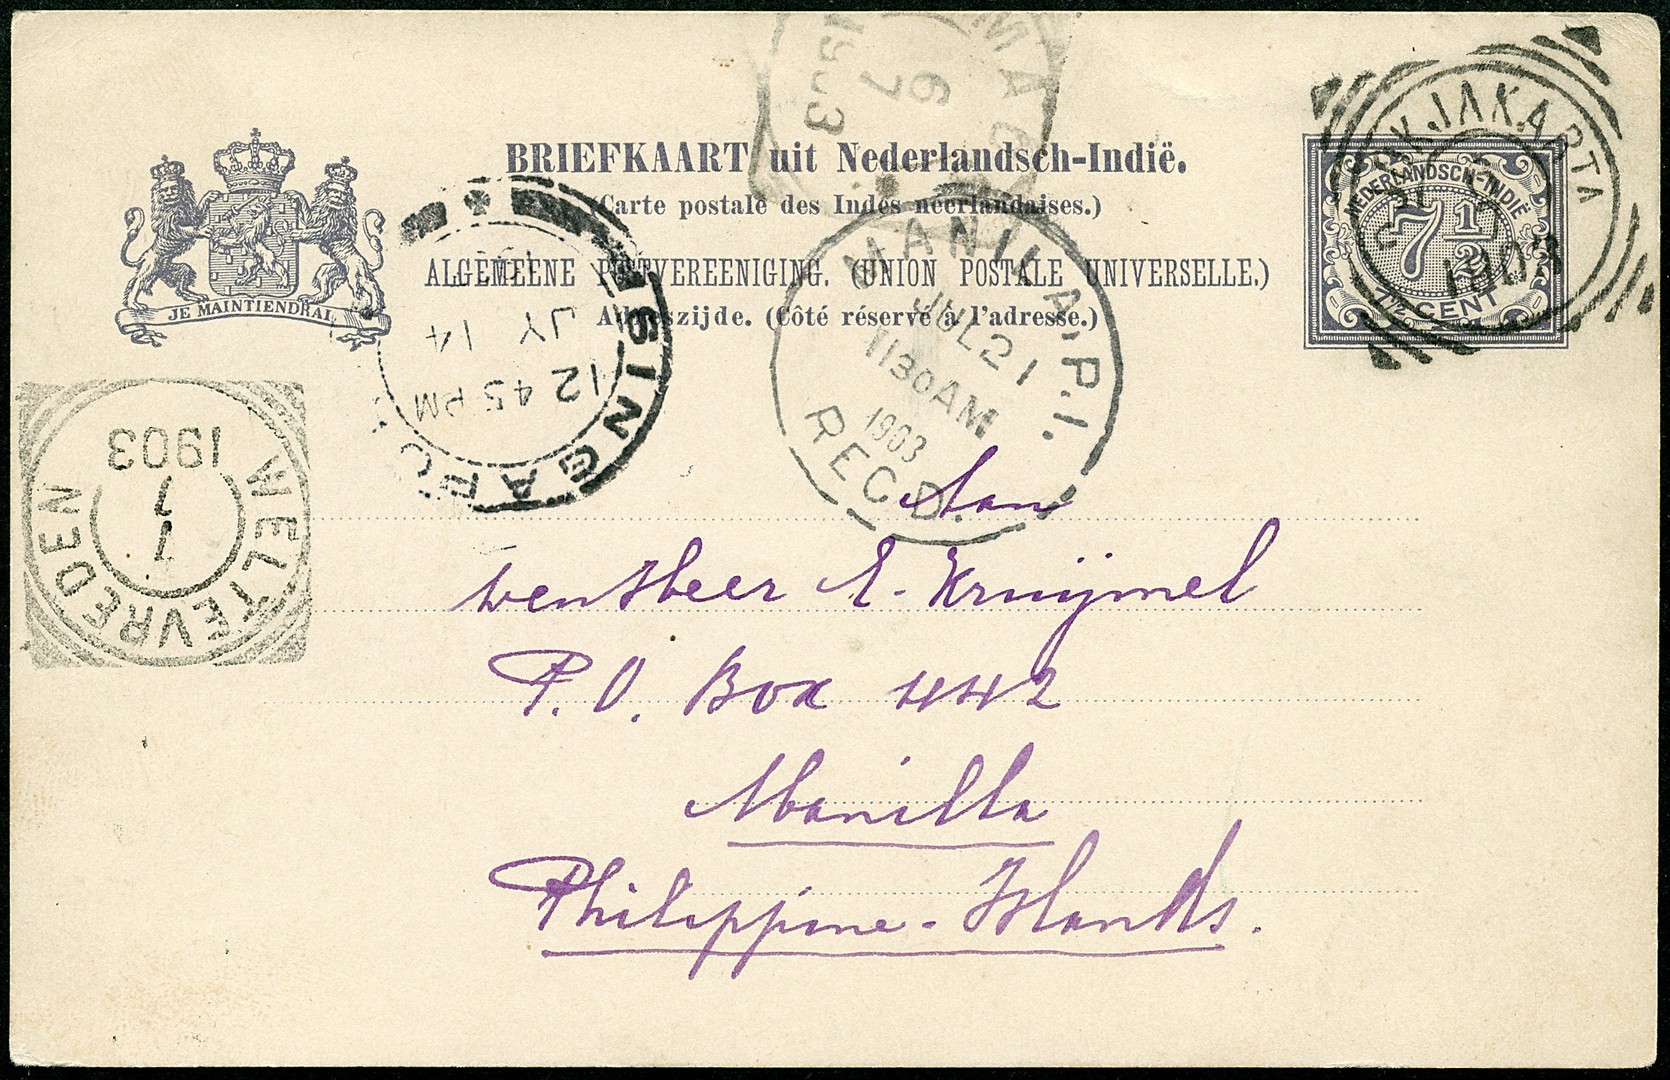 BRIEFKAART uit Nederlandsch-Indië.
(Carte postale des Indes néerlandaises.)
ALGEMEENE POSTVEREENIGING. (UNION POSTALE UNIVERSELLE.)
Adreszijde. (Côté réservé à l'adresse.)
JE MAINTIENDRAI
NEDERLANDSCH-INDIË
7 1/2
7 1/2 CENT
DJOKJAKARTA
1903
MA
6
7
1903
SINGAPO
JY 14
12 45 PM
MANILA, P.I.
JUL 21
11 30 AM
1903
REC'D.
WELTEVREDEN
1
7
1903
Aan
den Heer A. Kruijmel
P.O. Box 442
Manilla
Philippine-Islands.